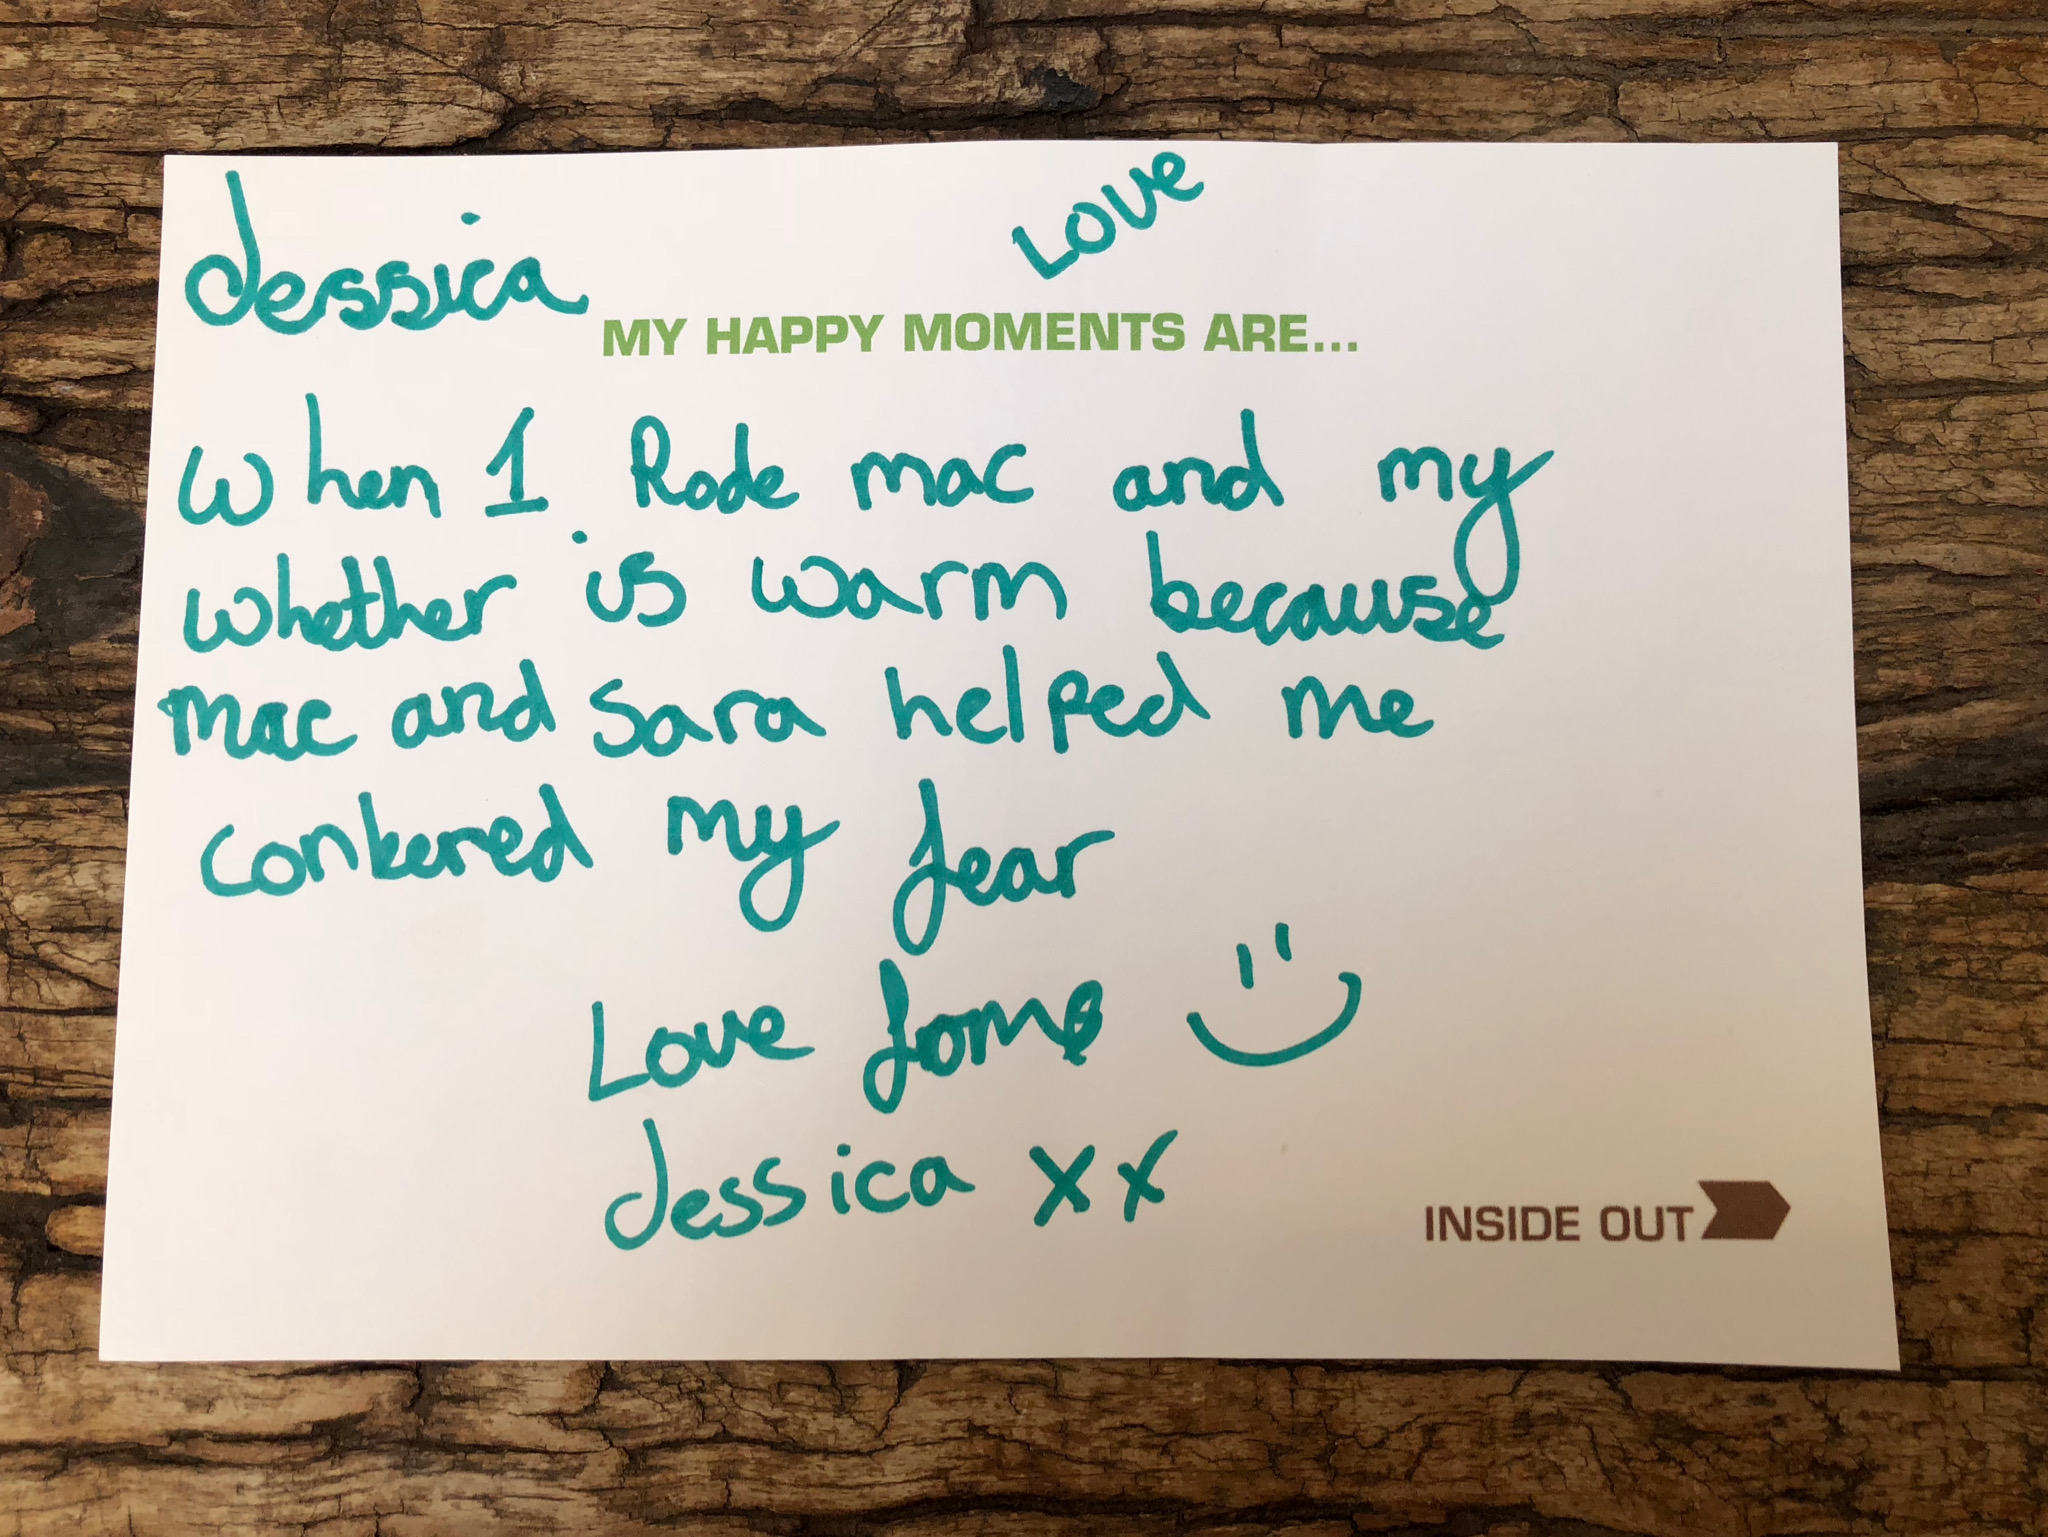 Jessica
LOVE
MY HAPPY MOMENTS ARE...
When 1 Rode mac and my
whether is warm because
mac and Sara helped me
conkered my fear
Love
Jessica xx
INSIDE OUT